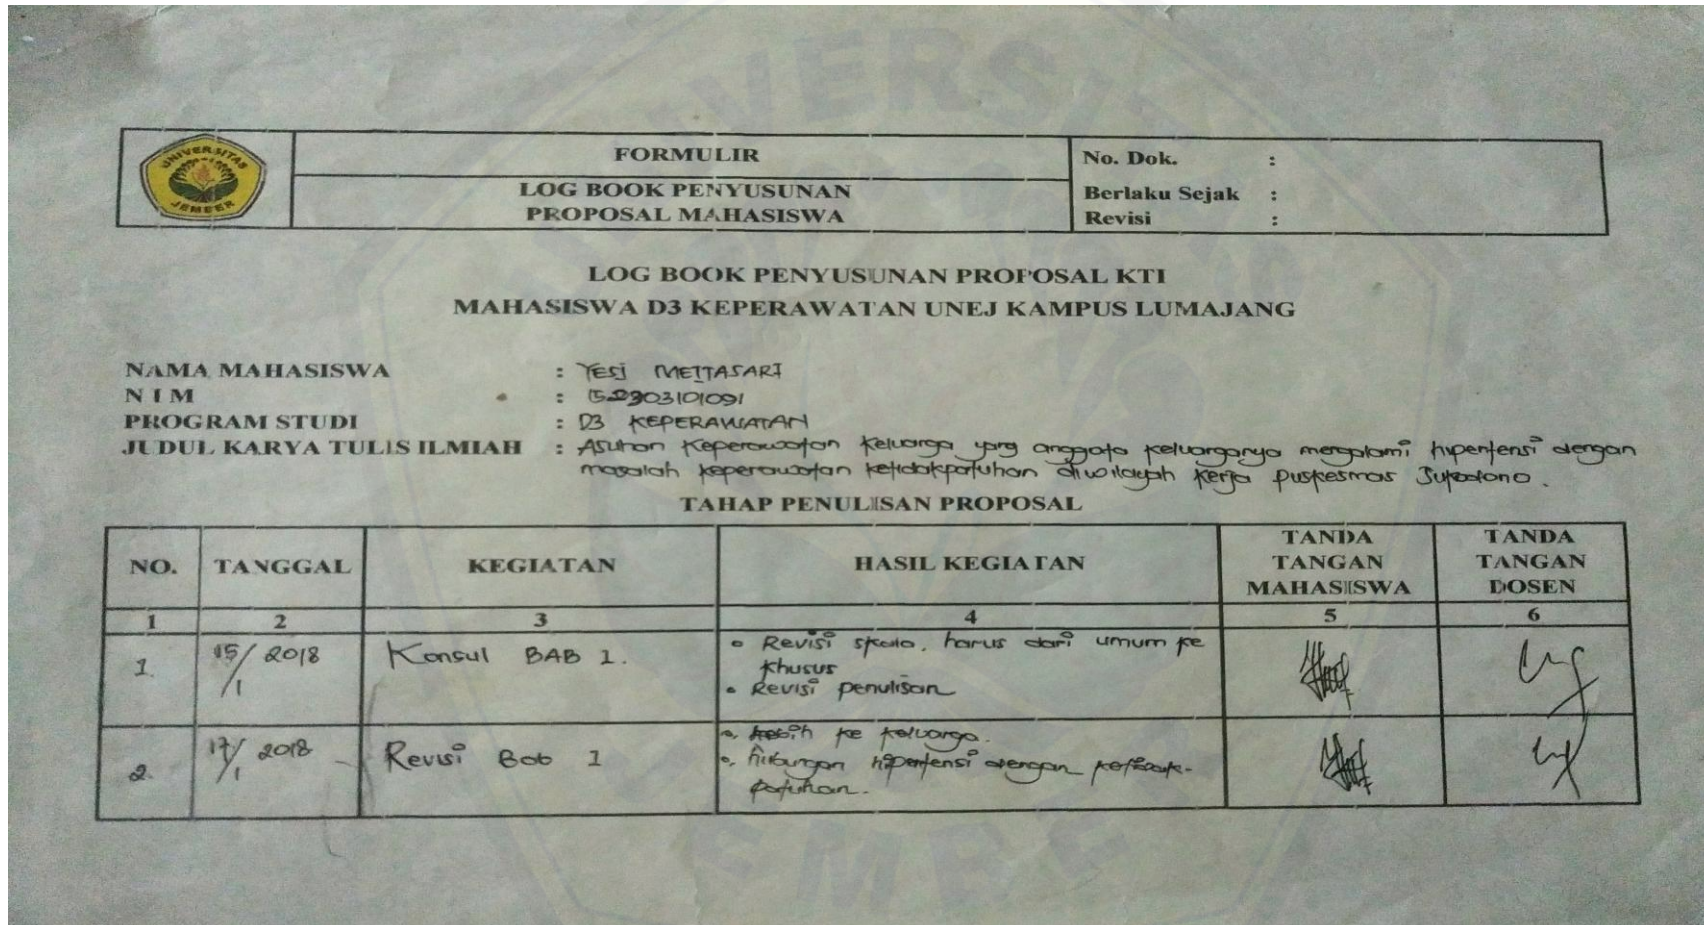 UNIVERSITAS
JEMBER
FORMULIR
LOG BOOK PENYUSUNAN
PROPOSAL MAHASISWA
No. Dok. :
Berlaku Sejak :
Revisi :
LOG BOOK PENYUSUNAN PROPOSAL KTI
MAHASISWA D3 KEPERAWATAN UNEJ KAMPUS LUMAJANG
NAMA MAHASISWA : YESI METTASARI
N I M : 152303101091
PROGRAM STUDI : D3 KEPERAWATAN
JUDUL KARYA TULIS ILMIAH : Asuhan Keperawatan Keluarga yang anggota keluarganya mengalami hipertensi dengan
masalah keperawatan ketidakpatuhan diwilayah kerja puskesmas Sukodono.
TAHAP PENULISAN PROPOSAL
NO. TANGGAL KEGIATAN HASIL KEGIATAN TANDA TANGAN MAHASISWA TANDA TANGAN DOSEN
1 2 3 4 5 6
1. 15/1 2018 Konsul BAB 1. • Revisi skala, harus dari umum ke
khusus
• Revisi penulisan
2. 17/1 2018 Revisi Bab 1 • lebih ke keluarga.
• hubungan hipertensi dengan ketidak-
patuhan.